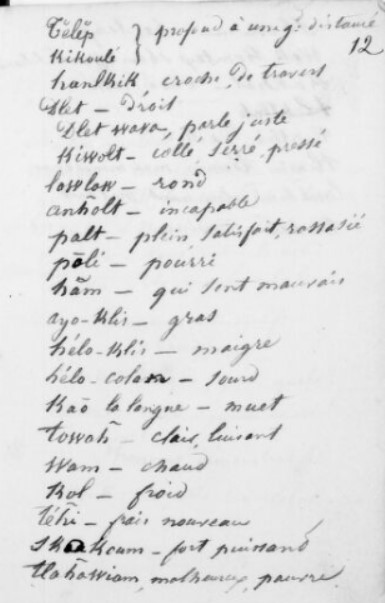 Tēlēp } profond à une g: distance
12
Kikoulé
hanlkik croche, de travers
Dlet — droit
Dlet wawa, parle juste
Kiwolt — collé, serré, pressé
lowlow — rond
anholt — incapable
palt — plein, satisfait, rassasié
pōlé — pourri
hām — qui sent mauvais
ayo-klis — gras
hélo-klis — maigre
hélo-colan — sourd
Kaō la langue — muet
towah — clair, luisant
Wam — chaud
Kol — froid
tēhi — frais nouveau
skookum — fort puissant
tlahawiam, malheureux, pauvre